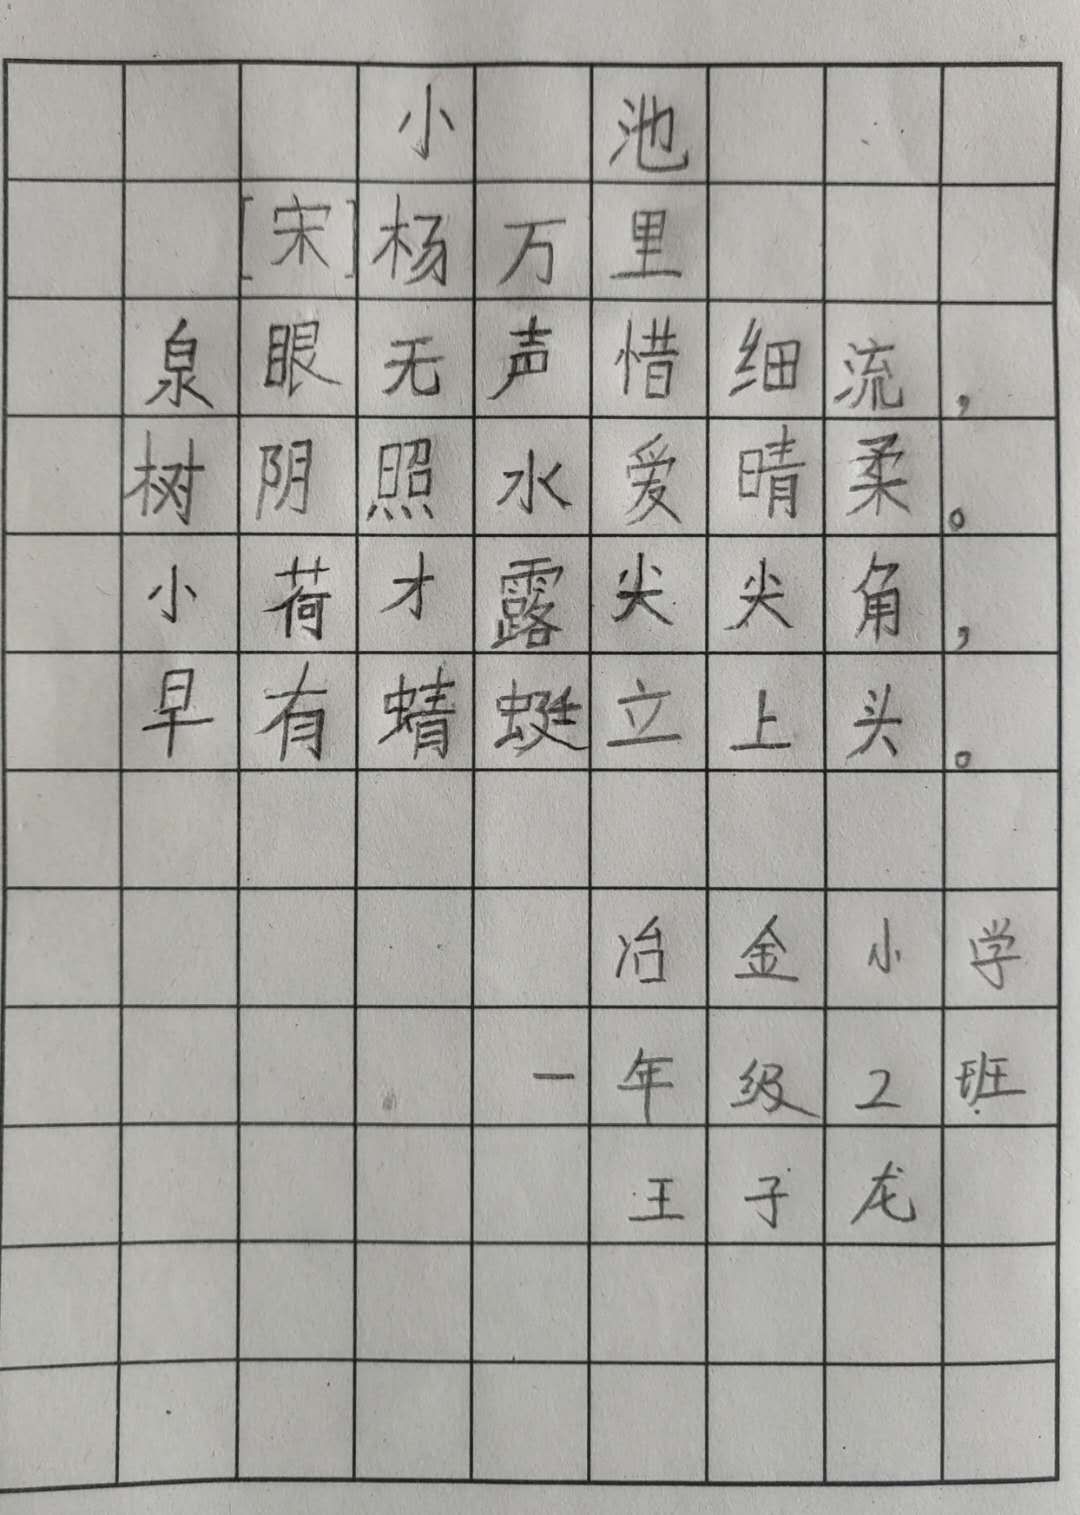 小池
[宋]杨万里
泉眼无声惜细流，
树阴照水爱晴柔。
小荷才露尖尖角，
早有蜻蜓立上头。
冶金小学
一年级2班
王子龙